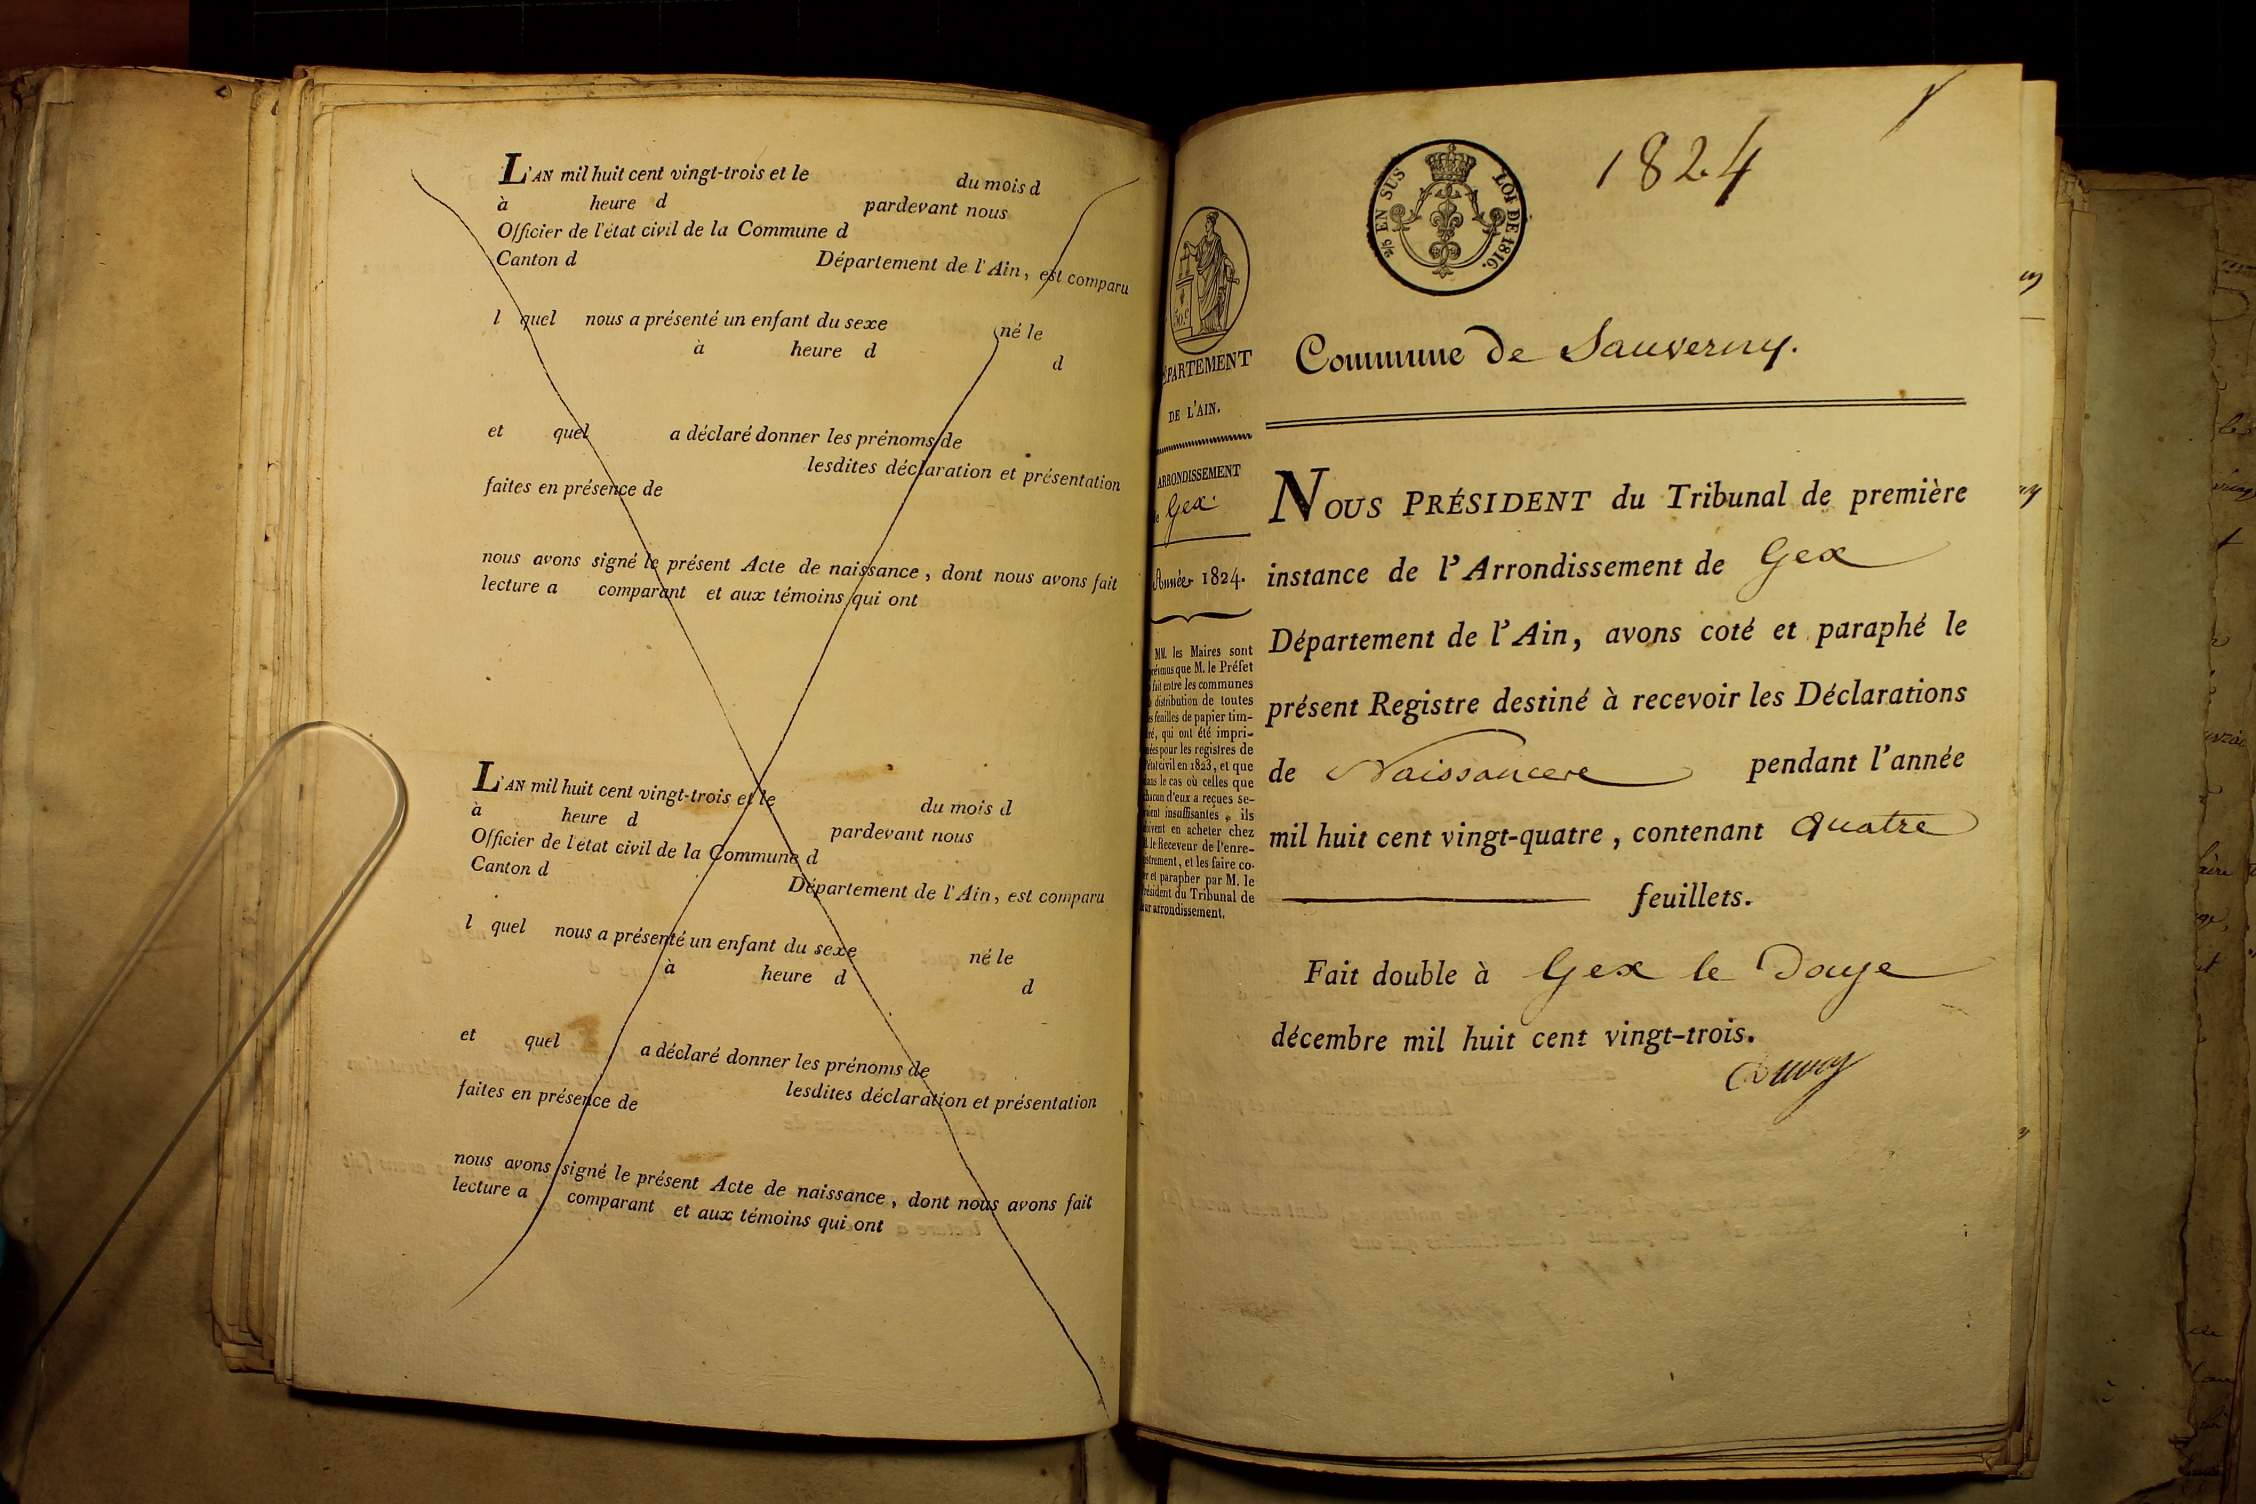 L'AN mil huit cent vingt-trois et le du mois d
à heure d pardevant nous
Officier de l'état civil de la Commune d
Canton d Département de l'Ain, est comparu
l quel nous a présenté un enfant du sexe né le
à heure d d
et quel a déclaré donner les prénoms de
lesdites déclaration et présentation
faites en présence de
nous avons signé le présent Acte de naissance, dont nous avons fait
lecture a comparant et aux témoins qui ont
L'AN mil huit cent vingt-trois et le du mois d
à heure d pardevant nous
Officier de l'état civil de la Commune d
Canton d Département de l'Ain, est comparu
l quel nous a présenté un enfant du sexe né le
à heure d d
et quel a déclaré donner les prénoms de
lesdites déclaration et présentation
faites en présence de
nous avons signé le présent Acte de naissance, dont nous avons fait
lecture a comparant et aux témoins qui ont
1824
EN SUS LOI DE 1816.
Commune de Sauverny.
DÉPARTEMENT
DE L'AIN.
ARRONDISSEMENT
de Gex.
Année 1824.
MM. les Maires sont
prévenus que M. le Préfet
a fait entre les communes
la distribution de toutes
les feuilles de papier tim-
bré, qui ont été impri-
mées pour les registres de
l'état civil en 1823, et que
dans le cas où celles que
chacun d'eux a reçues se-
roient insuffisantes, ils
doivent en acheter chez
M. le Receveur de l'enre-
gistrement, et les faire co-
ter et parapher par M. le
Président du Tribunal de
leur arrondissement.
NOUS PRÉSIDENT du Tribunal de première
instance de l'Arrondissement de Gex
Département de l'Ain, avons coté et paraphé le
présent Registre destiné à recevoir les Déclarations
de Naissance pendant l'année
mil huit cent vingt-quatre, contenant quatre
feuillets.
Fait double à Gex le Douze
décembre mil huit cent vingt-trois.